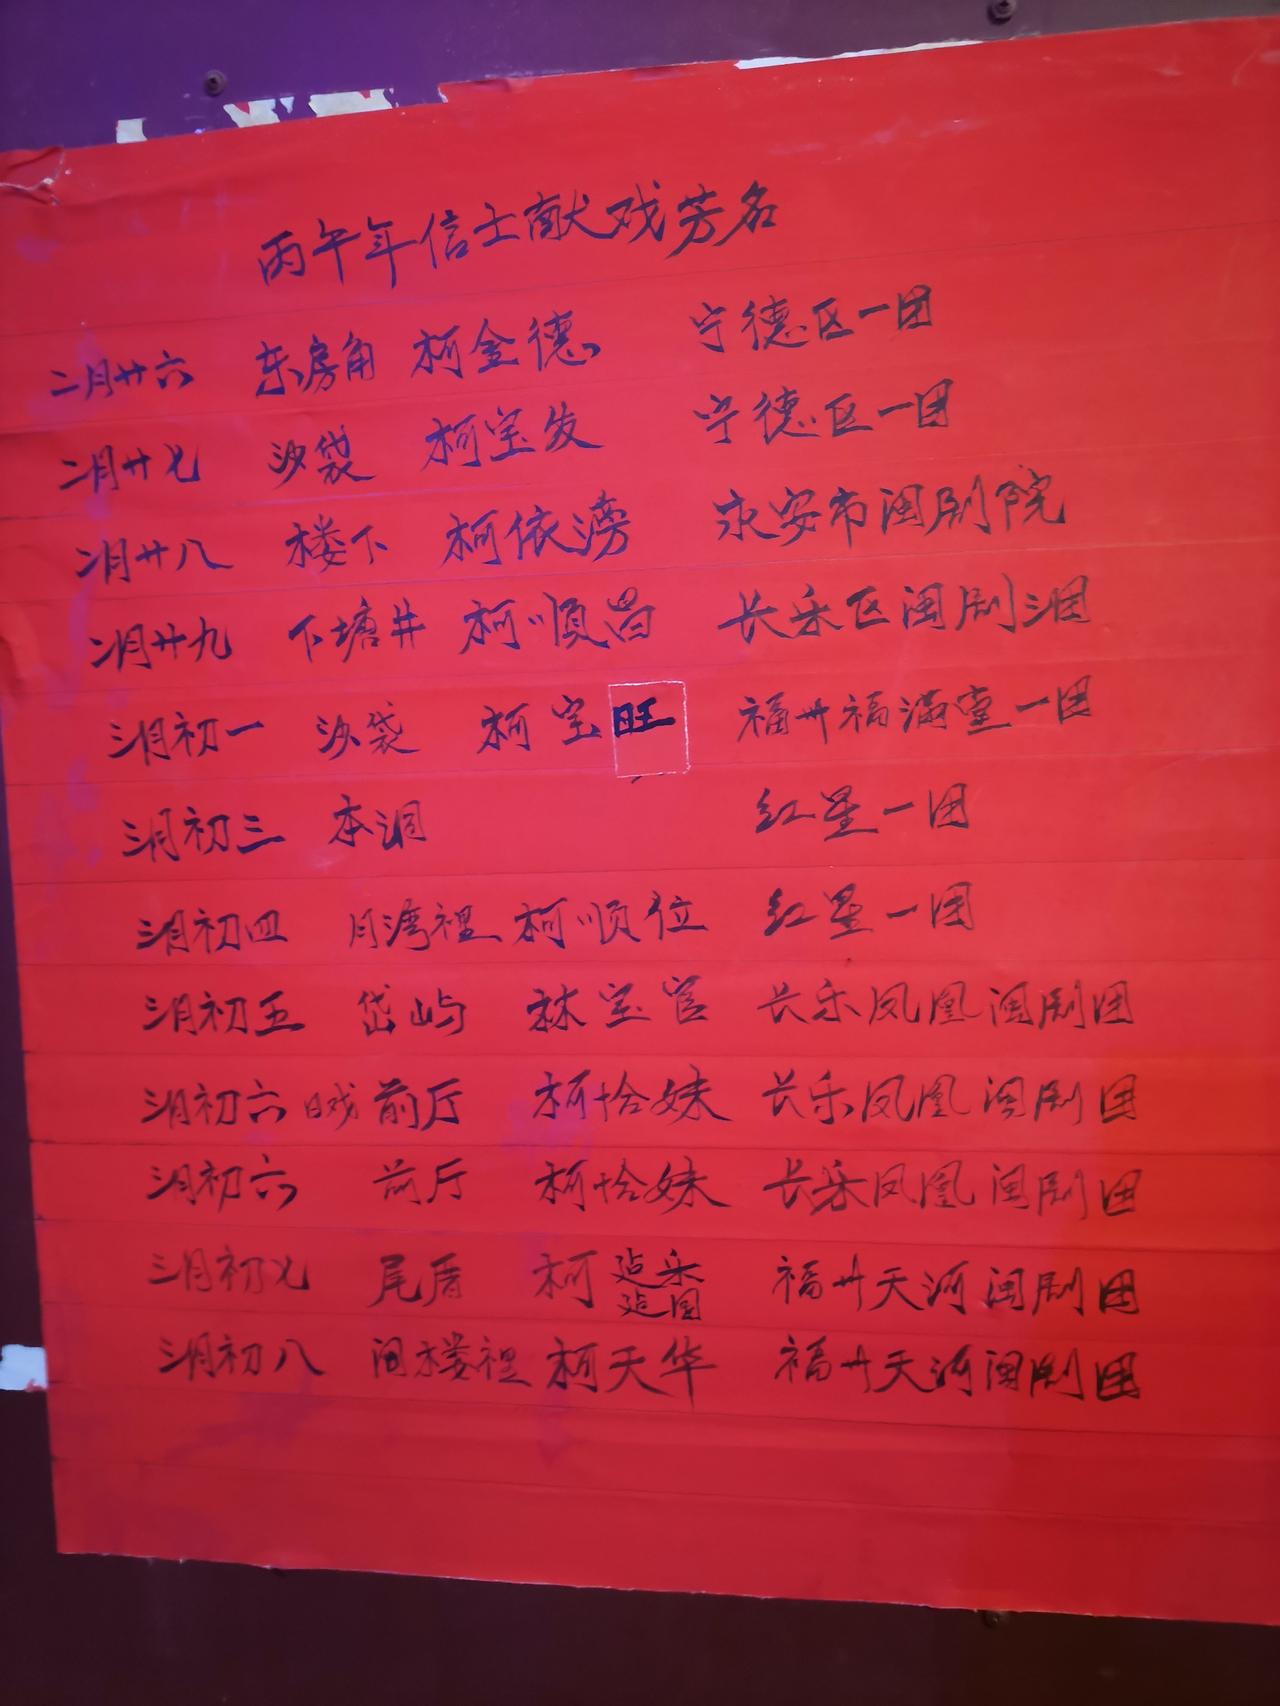 丙午年信士献戏芳名
二月廿六 东房角 柯金德 宁德区一团
二月廿七 沙袋 柯宝发 宁德区一团
二月廿八 楼下 柯依涝 永安市闽剧院
二月廿九 下塘井 柯顺昌 长乐区闽剧三团
三月初一 沙袋 柯宝旺 福州福满堂一团
三月初三 本涧 红星一团
三月初四 月湾裡 柯顺位 红星一团
三月初五 岱屿 林宝官 长乐凤凰闽剧团
三月初六 日戏 前厅 柯恰妹 长乐凤凰闽剧团
三月初六 前厅 柯恰妹 长乐凤凰闽剧团
三月初七 尾厝 柯 福州天河闽剧团
三月初八 闽楼裡 柯天华 福州天河闽剧团